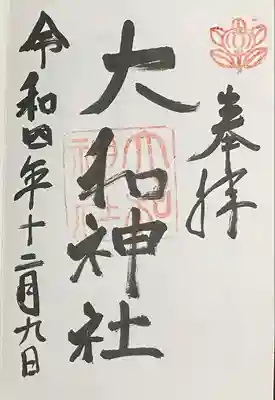 奉拝
大和神社
令和四年十二月九日